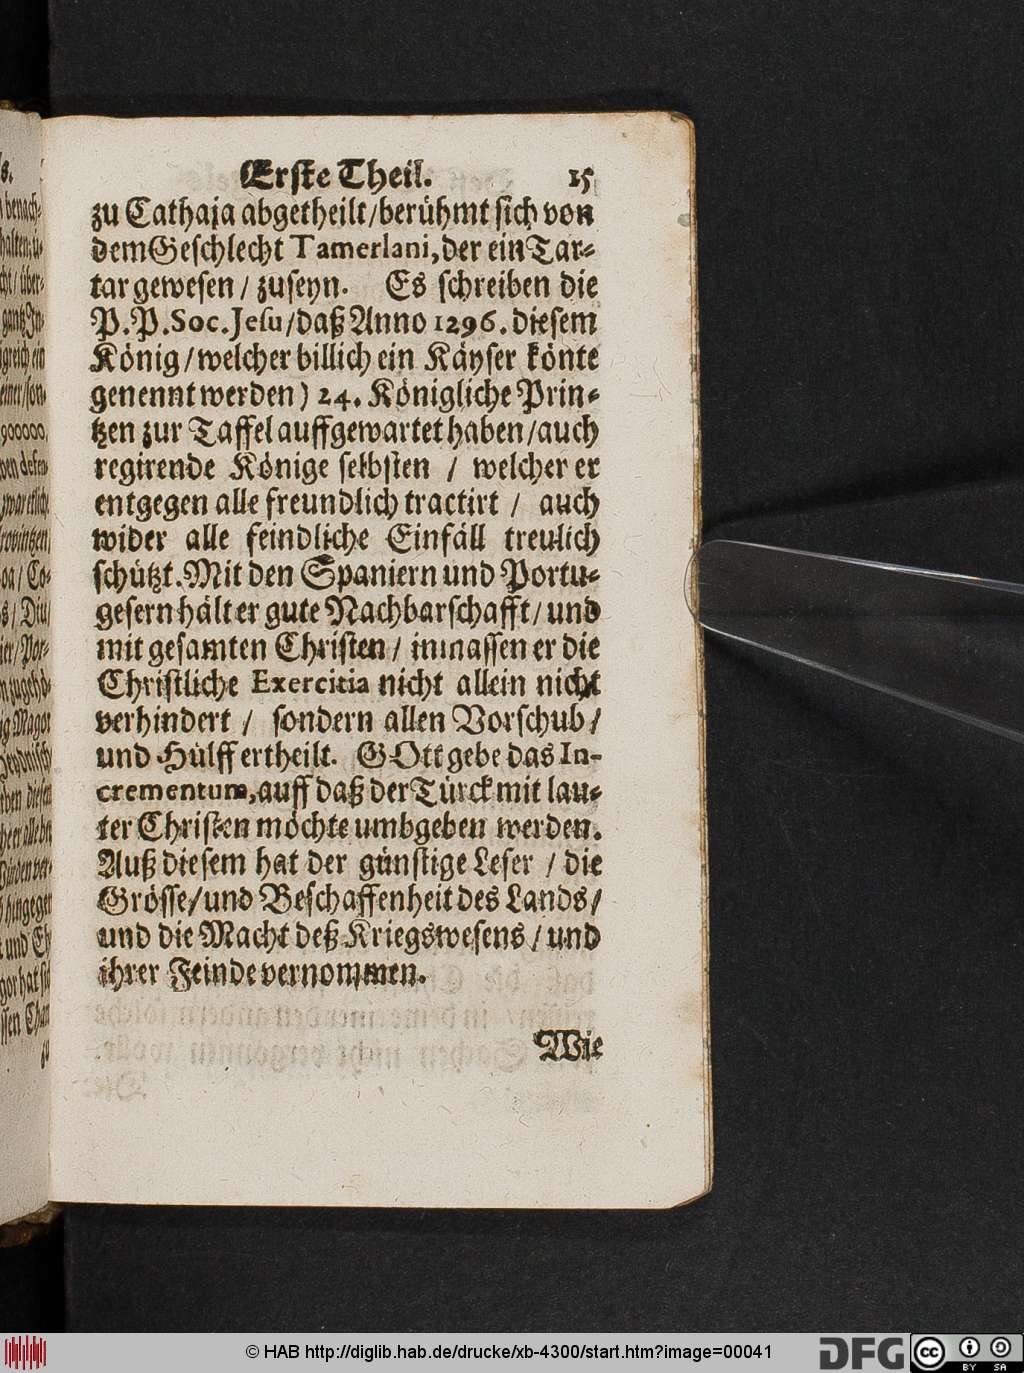 Erste Theil. 15
zu Cathaja abgetheilt/berühmt sich von
dem Geschlecht Tamerlani, der ein Tar-
tar gewesen / zuseyn. Es schreiben die
P. P. Soc. Jesu/daß Anno 1296. diesem
König/welcher billich ein Käyser könte
genennt werden) 24. Königliche Prin-
tzen zur Taffel auffgewartet haben/auch
regirende Könige selbsten / welcher er
entgegen alle freundlich tractirt / auch
wider alle feindliche Einfäll treulich
schützt. Mit den Spaniern und Portu-
gesern hält er gute Nachbarschafft/und
mit gesamten Christen / inmassen er die
Christliche Exercitia nicht allein nicht
verhindert / sondern allen Vorschub/
und Hülff ertheilt. GOtt gebe das In-
crementum, auff daß der Türck mit lau-
ter Christen möchte umbgeben werden.
Auß diesem hat der günstige Leser / die
Grösse/und Beschaffenheit des Lands/
und die Macht deß Kriegswesens/und
ihrer Feinde vernommen.
Wie
© HAB http://diglib.hab.de/drucke/xb-4300/start.htm?image=00041
DFG
cc BY SA